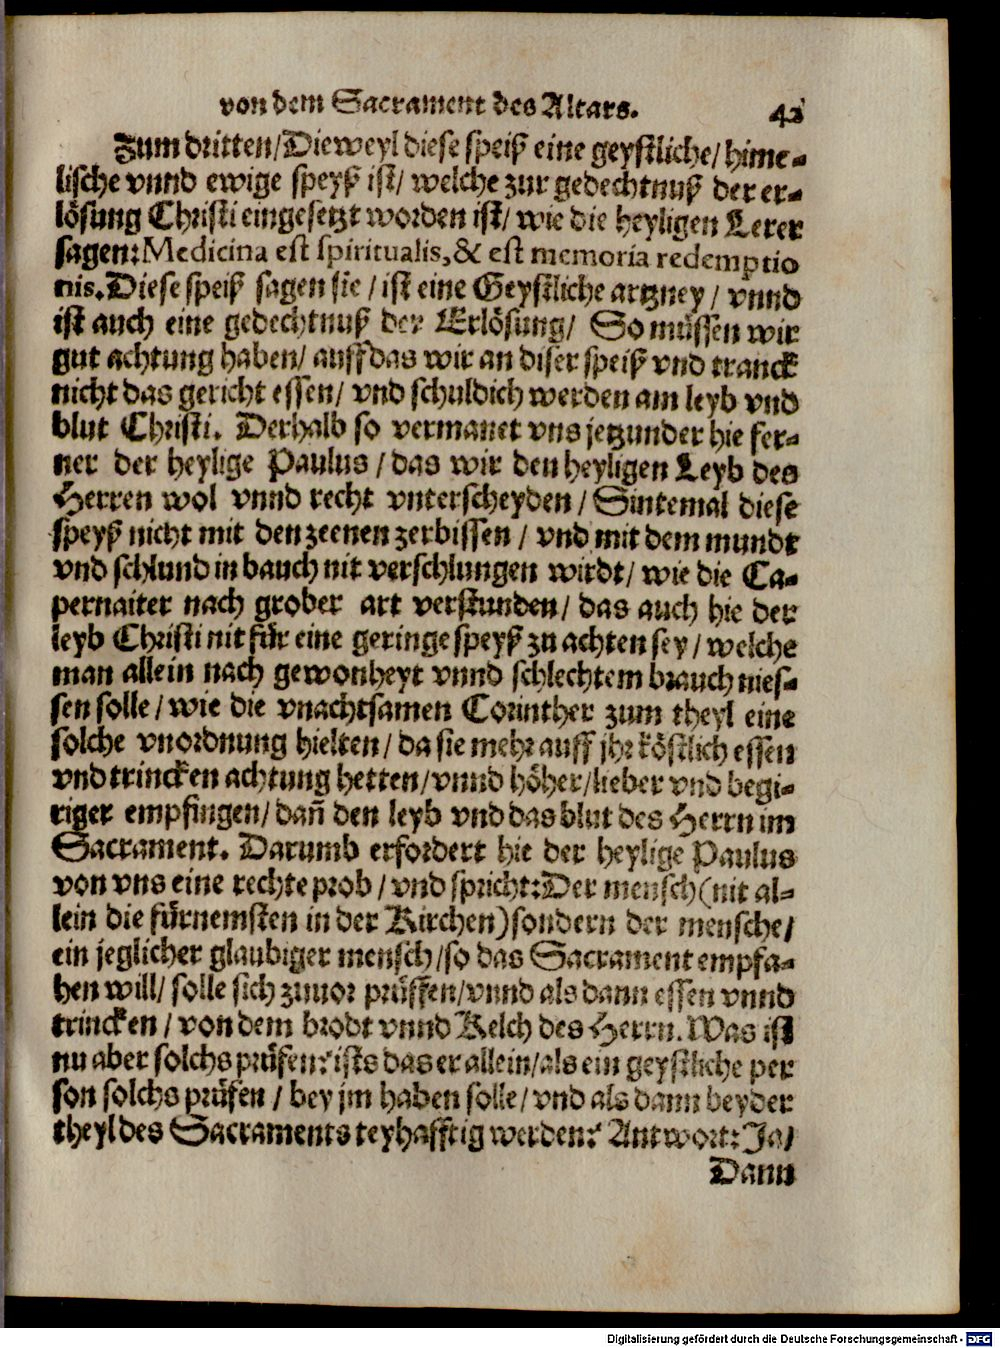 von dem Sacrament des Altars. 42
Zum dritten/Dieweyl diese speiß eine geystliche/ hime-
lische vnnd ewige speyß ist/ welche zur gedechtnuß der er-
lösung Christi eingesetzt worden ist/ wie die heyligen Lerer
sagen:Medicina est spiritualis,& est memoria redemptio
nis.Diese speiß sagen sie / ist eine Geystliche artzney / vnnd
ist auch eine gedechtnuß der Erlösung/ So müssen wir
gut achtung haben/ auff das wir an diser speiß vnd tranck
nicht das gericht essen/ vnd schuldich werden am leyb vnd
blut Christi. Derhalb so vermanet vns jetzunder hie fer-
ner der heylige Paulus / das wir den heyligen Leyb des
Herren wol vnnd recht vnterscheyden / Sintemal diese
speyß nicht mit den zeenen zerbissen / vnd mit dem mundt
vnd schlund in bauch nit verschlungen wirdt/ wie die Ca-
pernaiter nach grober art verstunden/ das auch hie der
leyb Christi nit für eine geringe speyß zu achten sey / welche
man allein nach gewonheyt vnnd schlechtem brauch nies-
sen solle / wie die vnachtsamen Corinther zum theyl eine
solche vnordnung hielten / da sie mehr auff jhr köstlich essen
vnd trincken achtung hetten/vnnd höher/lieber vnd begi-
riger empfingen/ dañ den leyb vnd das blut des Herrn im
Sacrament. Darumb erfordert hie der heylige Paulus
von vns eine rechte prob / vnd spricht:Der mensch(nit al-
lein die fürnemsten in der Kirchen)sondern der mensche/
ein jeglicher glaubiger mensch/so das Sacrament empfa-
hen will/ solle sich zuuor prüffen/vnnd als dann essen vnnd
trincken / von dem brodt vnnd Kelch des Herrn. Was ist
nu aber solchs prüfen? ists das er allein/als ein geystliche per
son solchs prüfen / bey jm haben solle/ vnd als dann beyder
theyl des Sacraments teyhafftig werden? Antwort: Ja/
Dann
Digitalisierung gefördert durch die Deutsche Forschungsgemeinschaft - DFG